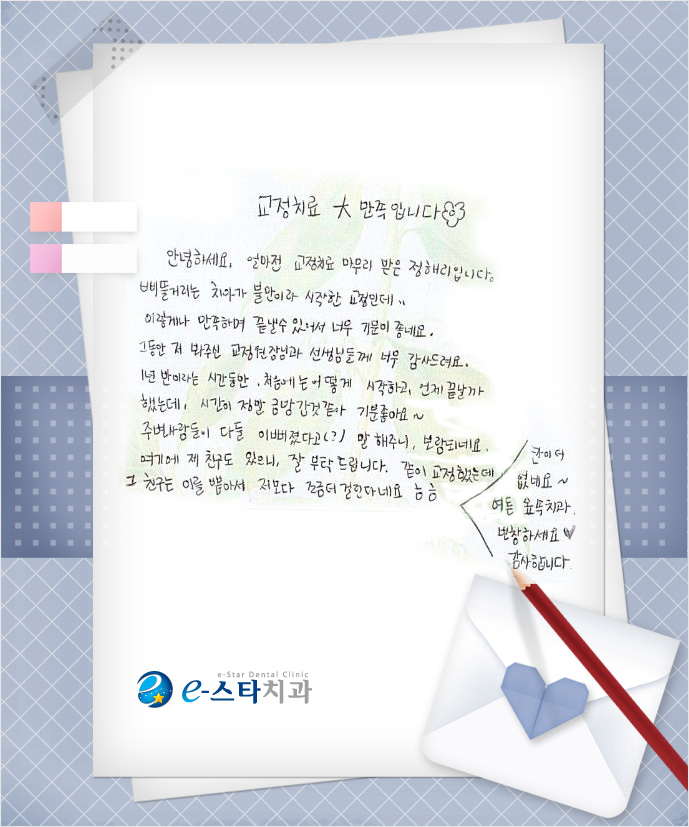 교정치료 大 만족입니다
안녕하세요, 얼마전 교정치료 마무리 받은 정해리입니다.
삐뚤거리는 치아가 불만이라 시작한 교정인데..
이렇게나 만족하며 끝낼수 있어서 너무 기분이 좋네요.
그동안 저 봐주신 교정원장님과 선생님들께 너무 감사드려요.
1년 반이라는 시간동안, 처음에는 어떻게 시작하고, 언제 끝날까
했는데, 시간이 정말 금방 간것같아 기분좋아요~
주변사람들이 다들 이뻐졌다고(?) 말해주니, 보람되네요.
여기에 제 친구도 있으니, 잘 부탁드립니다. 같이 교정했는데
그 친구는 이를 뽑아서 저보다 조금더 걸린다네요 ㅎㅎ
칸이 더
없네요~
여튼 치과,
번창하세요♥
감사합니다.
e-Star Dental Clinic
e-스타치과